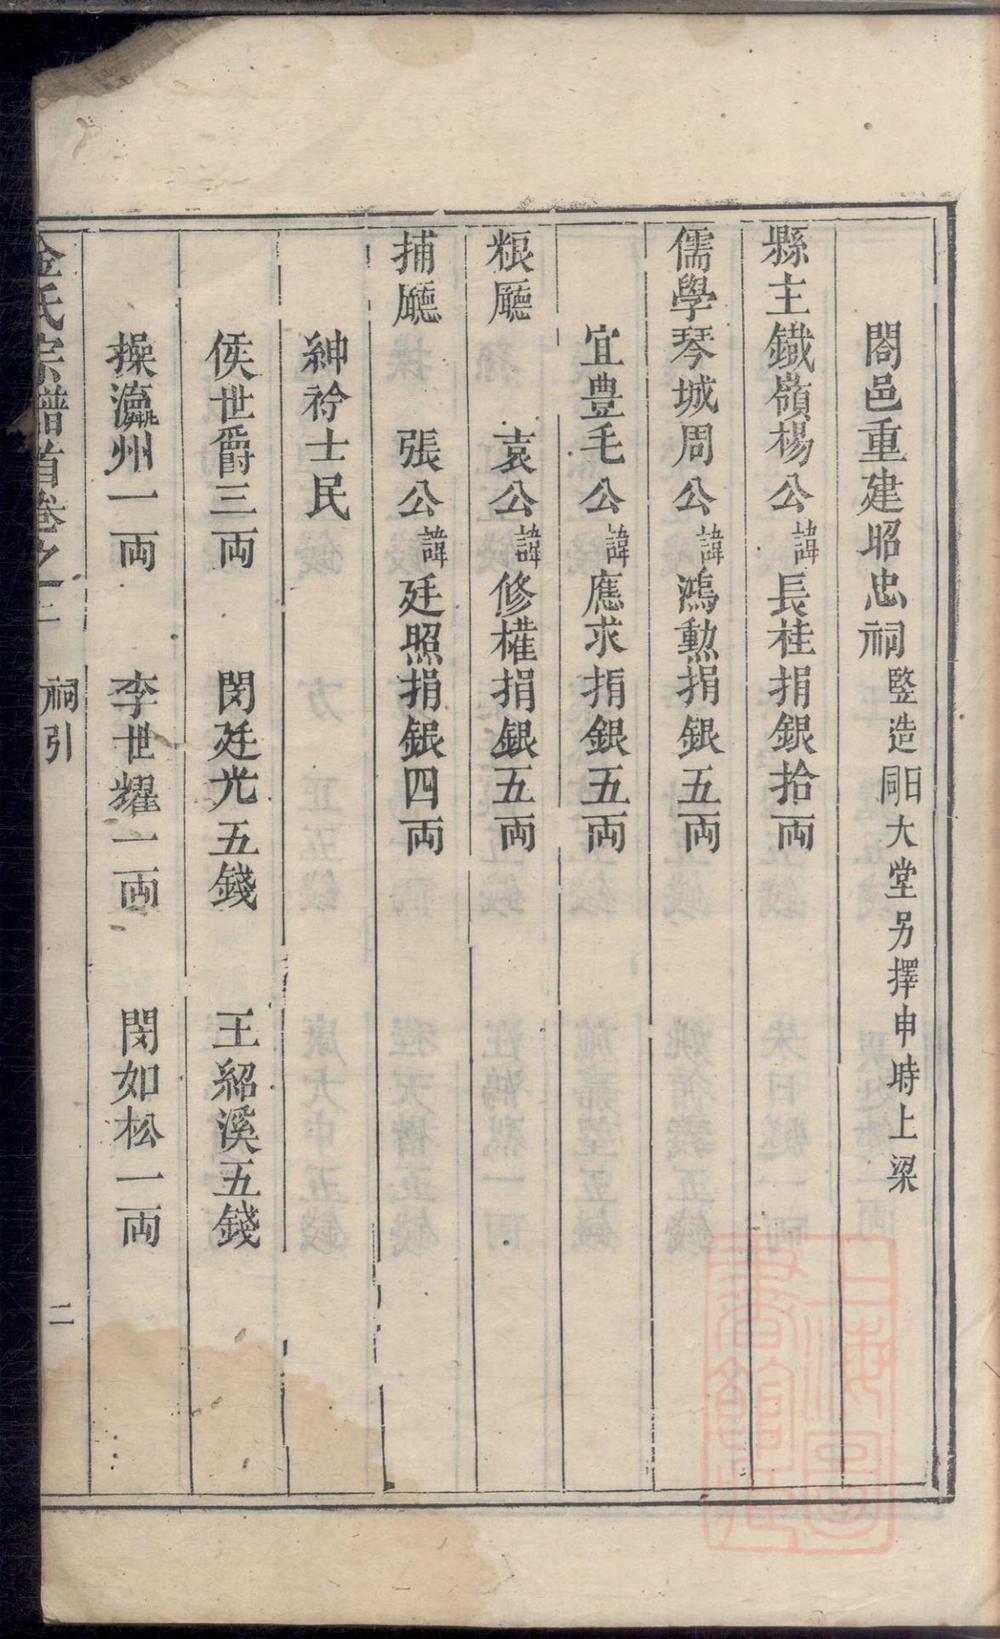 閤邑重建昭忠祠監造同日大堂另擇申時上梁
縣主鐵嶺楊公諱長桂捐銀拾両
儒學琴城周公諱鴻勲捐銀五両
宜豊毛公諱應求捐銀五両
粮廳　袁公諱修權捐銀五両
捕廳　張公諱廷照捐銀四両
紳衿士民
侯世爵三両　閔廷光五錢　王紹溪五錢
操瀛州一両　李世耀一両　閔如松一両
金氏宗譜首卷之一　祠引　二
上海圖書館藏